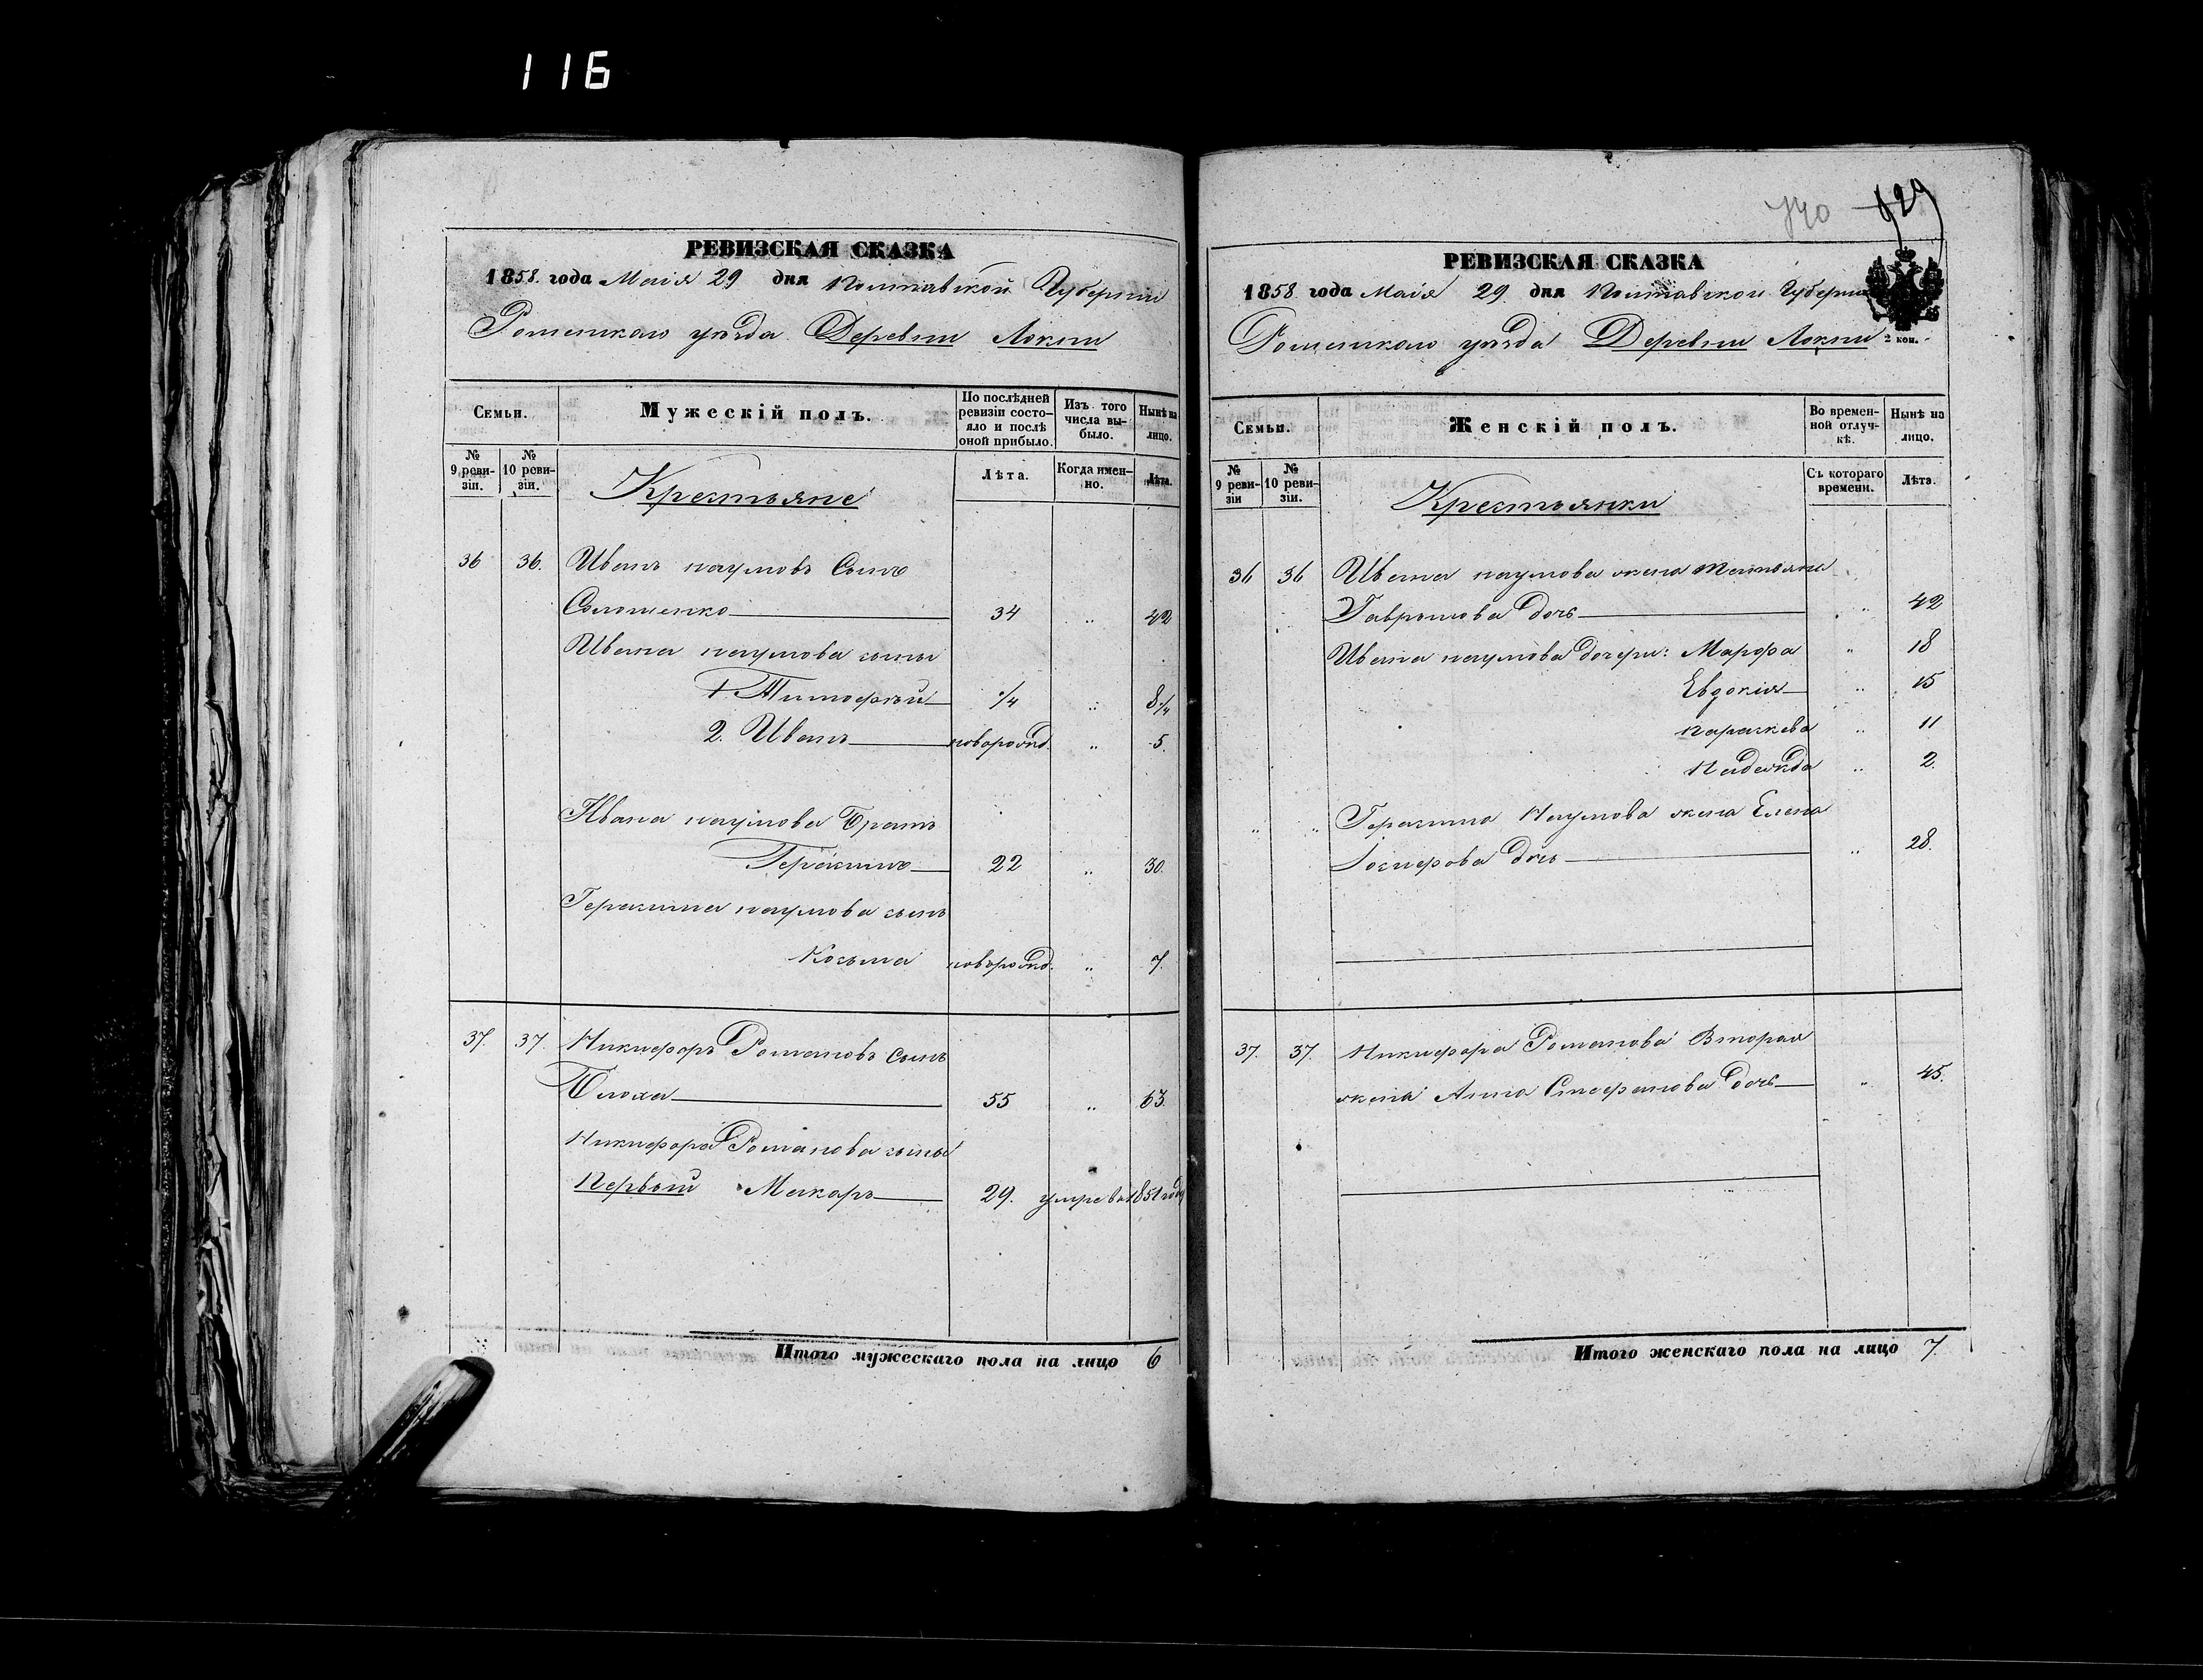 116
РЕВИЗСКАЯ СКАЗКА
1858. года Маія 29 дня Полтавской Губерніи
Роменскаго уѣзда Деревни Локни
Семьи.
Мужескій полъ.
По послѣдней ревизіи состояло и послѣ оной прибыло.
Изъ того числа выбыло.
Нынѣ на лицо.
№ 9 ревизіи.
№ 10 ревизіи.
Крестьяне
Лѣта.
Когда именно.
Лѣта.
36 36. Иванъ наумовъ Сынъ
Соломенко 34 „ 42
Ивана наумова сыны
1. Тимофѣй 1/4 „ 8 1/4
2. Иванъ новорожд. „ 5.
Ивана наумова Братъ
Герасимъ 22 „ 30.
Герасима наумова сынъ
Козьма новорожд. „ 7.
37. 37. Никифоръ Романовъ сынъ
Блоха 55 „ 63.
Никифора Романова сыны
Первый Макаръ 29. умре въ 1851 году
Итого мужескаго пола на лицо 6
740 929
РЕВИЗСКАЯ СКАЗКА
1858 года Маія 29. дня Полтавской Губерніи
Роменскаго уѣзда Деревни Локни
2 коп.
Семьи.
Женскій полъ.
Во временной отлучкѣ.
Нынѣ на лицо.
№ 9 ревизіи
№ 10 ревизіи.
Крестьянки
Съ котораго времени.
Лѣта.
36 36 Ивана наумова жена татьяна
Гаврылова дочь „ 42
Ивана наумова дочери: Марфа „ 18
Евдокія „ 15
параскева „ 11
Надежда „ 2.
„ „ Герасима Наумова жена Елена
Іосифова дочь „ 28.
37. 37. Никифора Романова Вторая
жена Анна Стефанова дочь „ 45.
Итого женскаго пола на лицо 7.